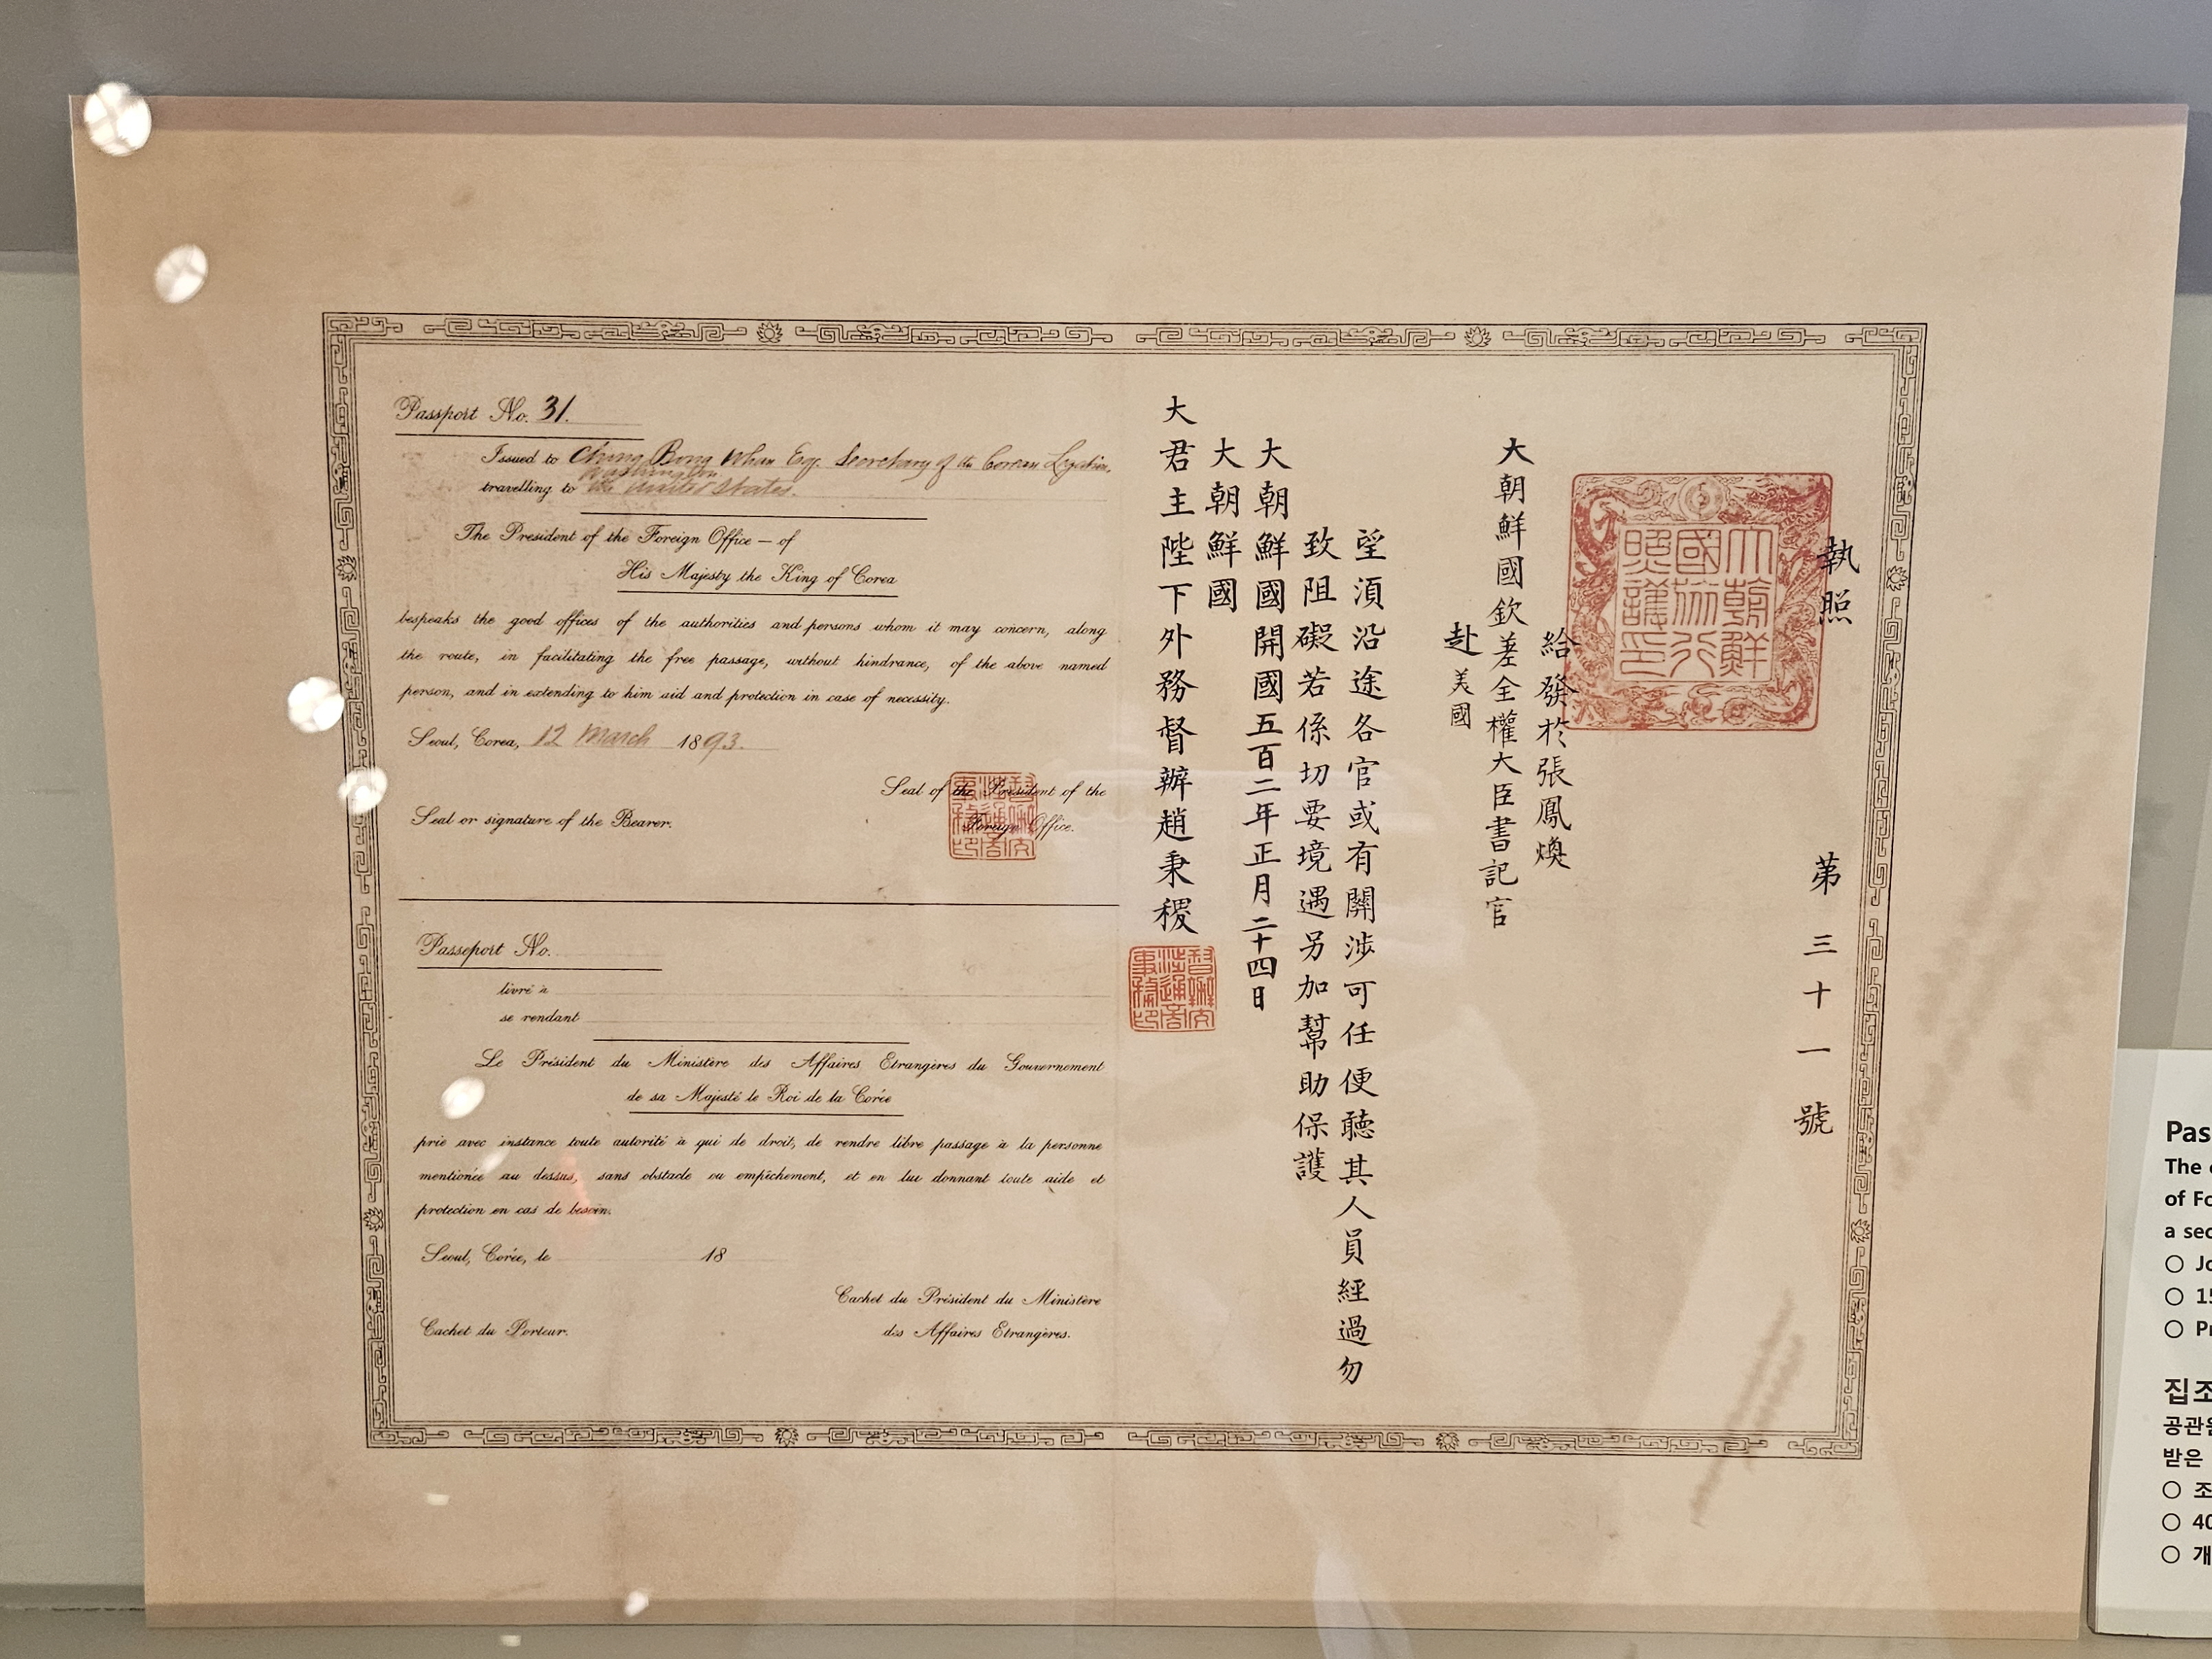 Passport No. 31.
Issued to Chang Bong Whan Esq. Secretary of the Corean Legation,
Washington
travelling to the United States.
The President of the Foreign Office — of
His Majesty the King of Corea
bespeaks the good offices of the authorities and persons whom it may concern, along
the route, in facilitating the free passage, without hindrance, of the above named
person, and in extending to him aid and protection in case of necessity.
Seoul, Corea, 12 March 1893.
Seal of the President of the
Foreign Office.
Seal or signature of the Bearer.
Passeport No.
livré à
se rendant
Le Président du Ministère des Affaires Etrangères du Gouvernement
de sa Majesté le Roi de la Corée
prie avec instance toute autorité à qui de droit, de rendre libre passage à la personne
mentionée au dessus, sans obstacle ou empêchement, et en lui donnant toute aide et
protection en cas de besoin.
Seoul, Corée, le 18
Cachet du Président du Ministère
des Affaires Etrangères.
Cachet du Porteur.
執照 第三十一號
大朝鮮國協行照護印
給發於張鳳煥
大朝鮮國欽差全權大臣書記官
赴美國
望須沿途各官或有關涉可任便聽其人員經過勿
致阻礙若係切要境遇另加幫助保護
大朝鮮國開國五百二年正月二十四日
大朝鮮國
大君主陛下外務督辦趙秉稷
督辦交涉通商事務印
Pas
The
of Fo
a sec
15
집조
공관원
받은
조
40
개